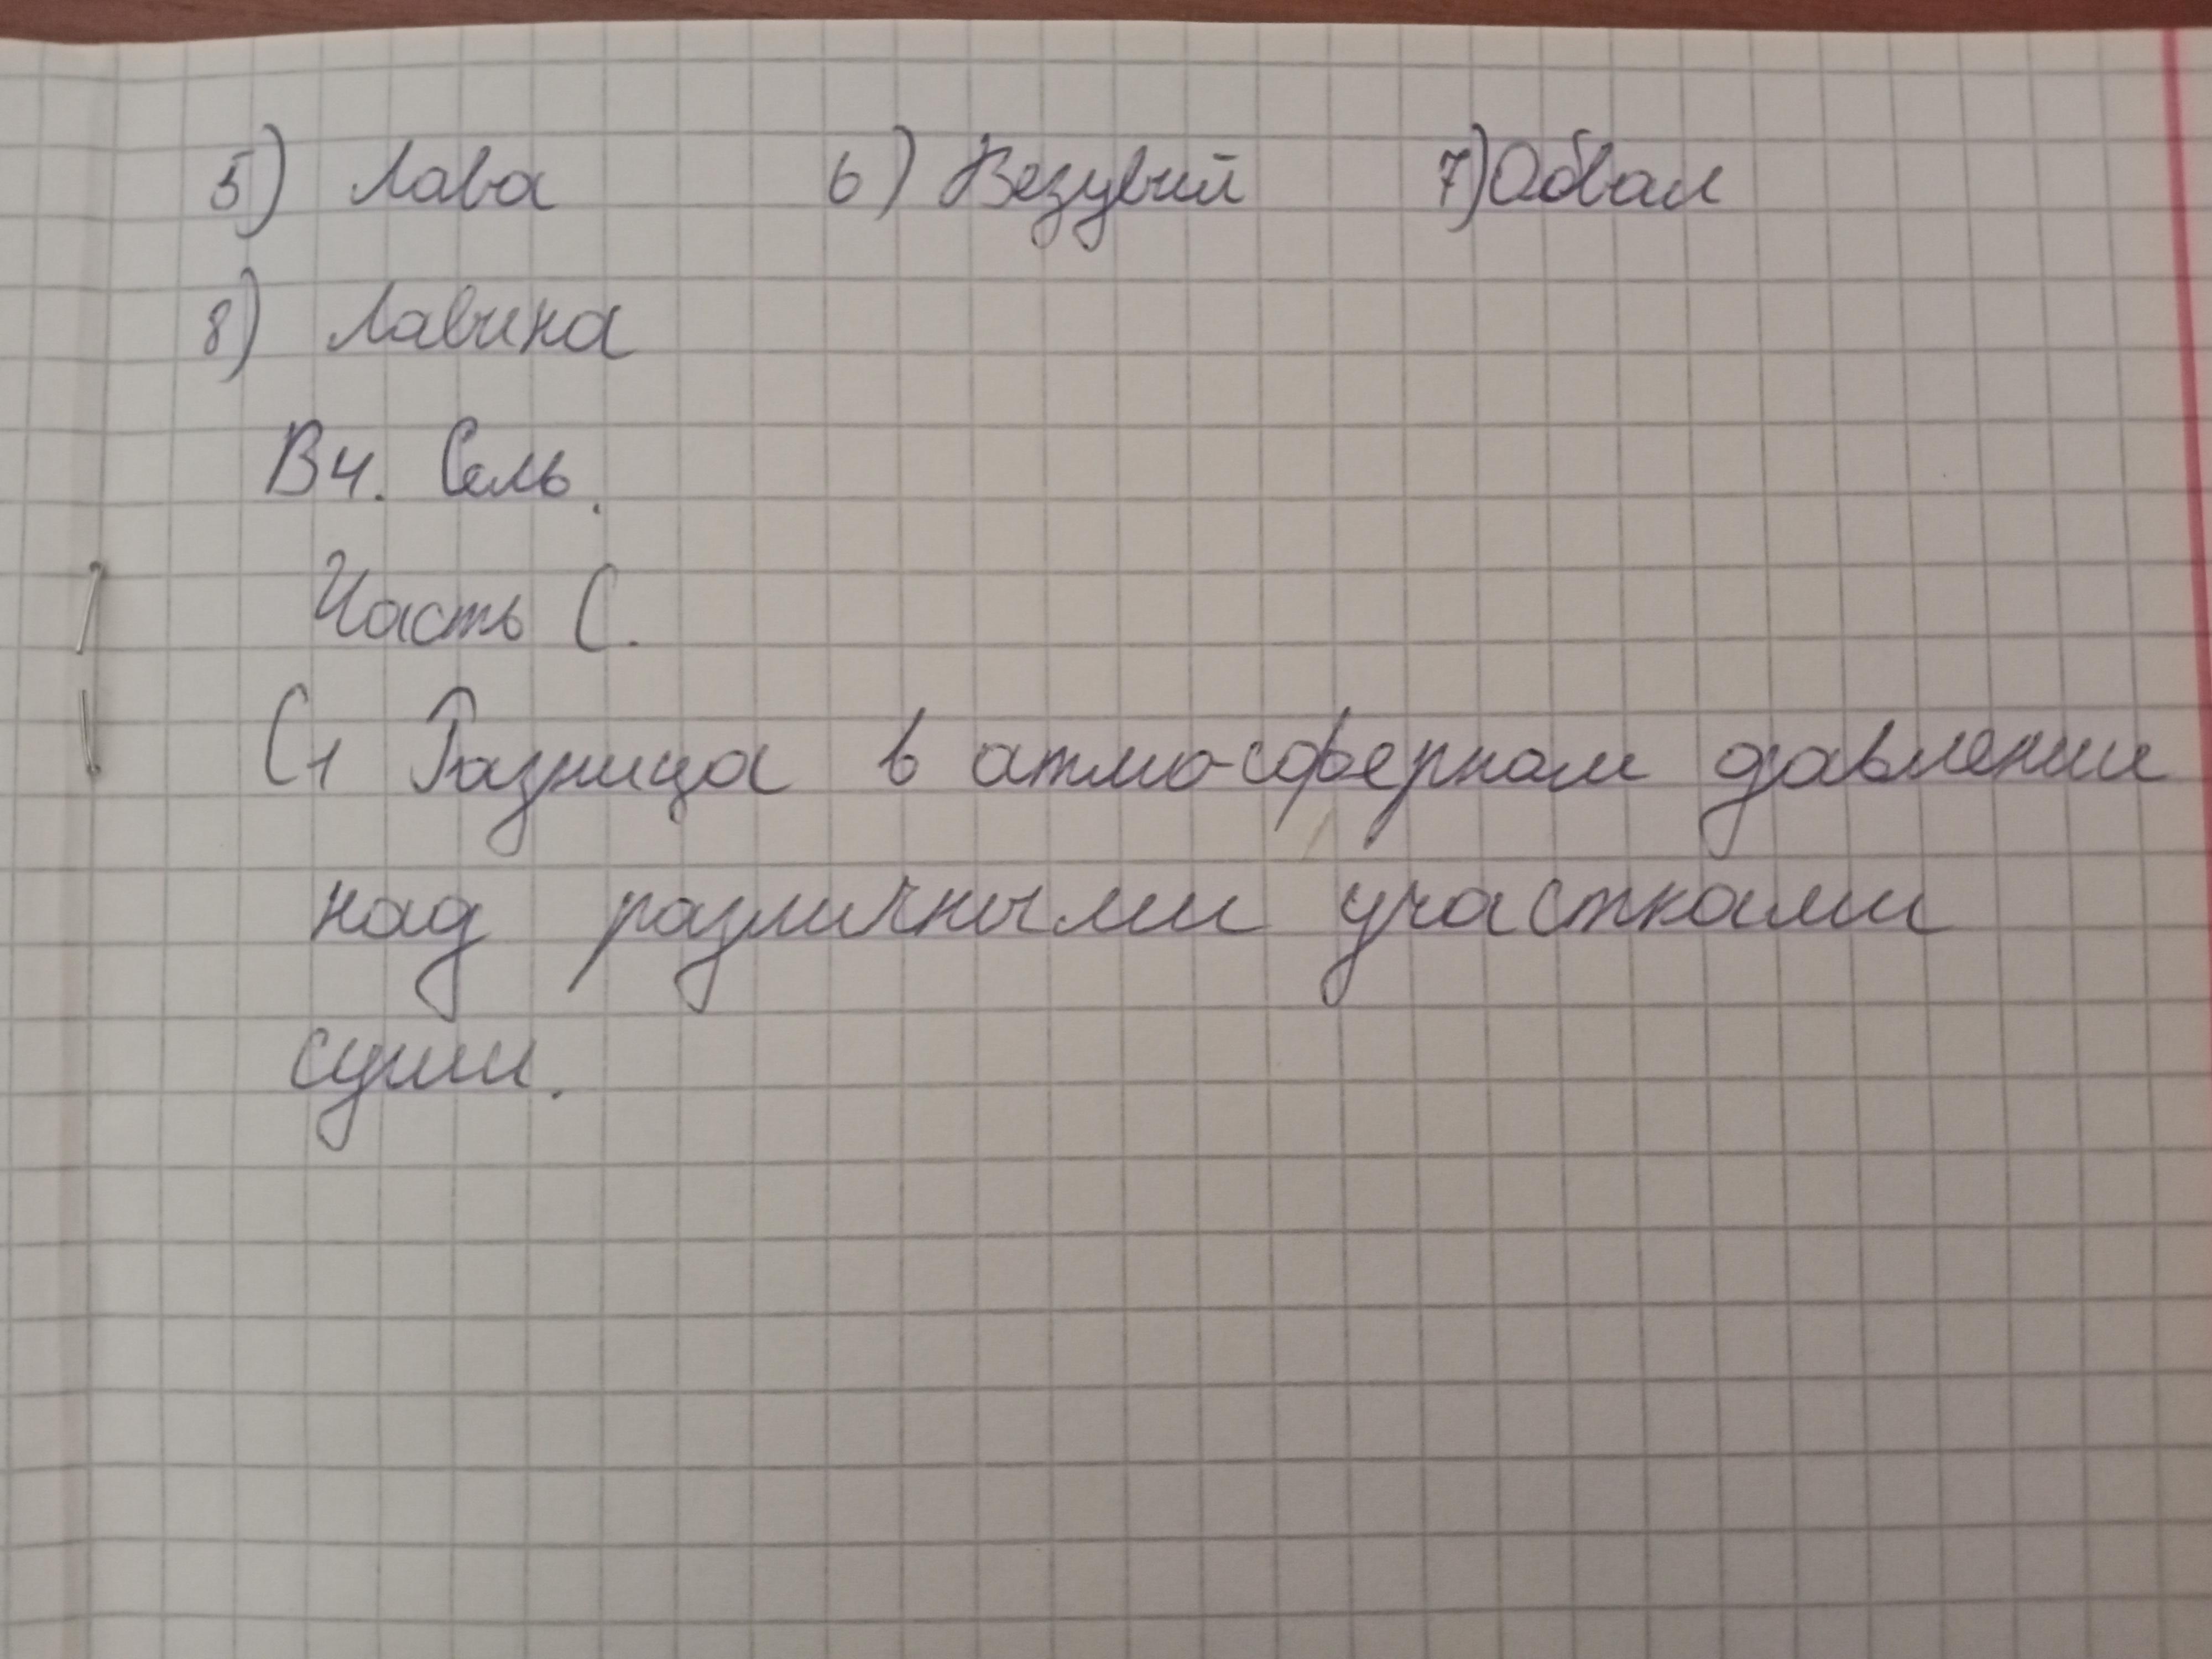 5) Лава 6) Везувий 7) Обвал
8) Лавина
В4. Сель.
Часть С.
С1 Разница в атмосферном давлении
над различными участками
суши.